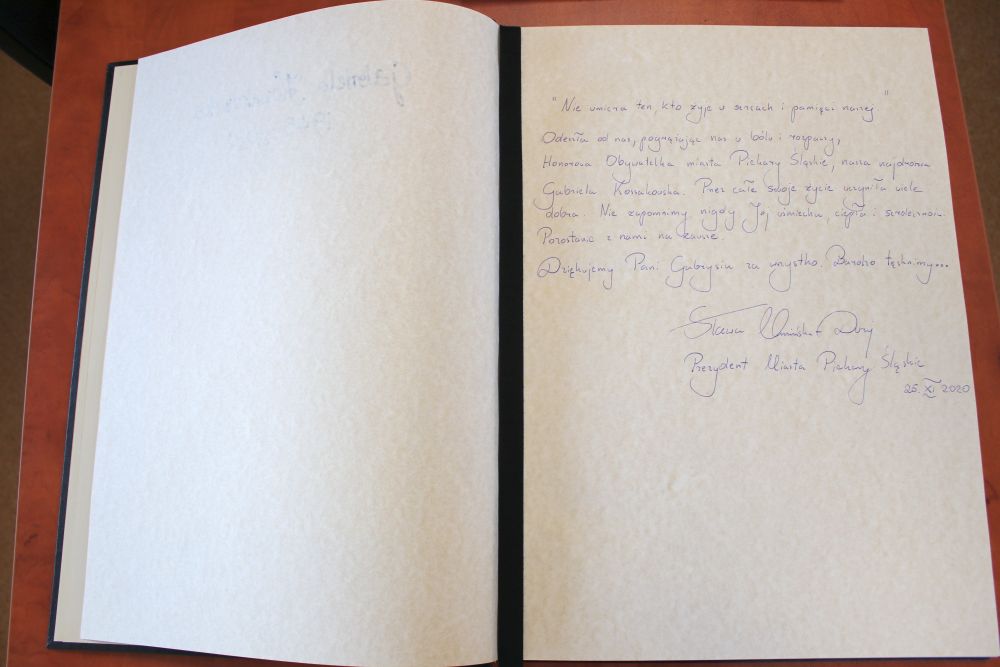 "Nie umiera ten, kto żyje w sercach i pamięci naszej."
Odeszła od nas, pogrążając nas w bólu i rozpaczy,
Honorowa Obywatelka miasta Piekary Śląskie, nasza najdroższa
Gabriela Kossakowska. Przez całe swoje życie uczyniła wiele
dobra. Nie zapomnimy nigdy Jej uśmiechu, ciepła i serdeczności.
Pozostanie z nami na zawsze.
Dziękujemy Pani Gabrysiu za wszystko. Bardzo tęsknimy...
Sława Umińska-Duraj
Prezydent Miasta Piekary Śląskie
25.XI 2020